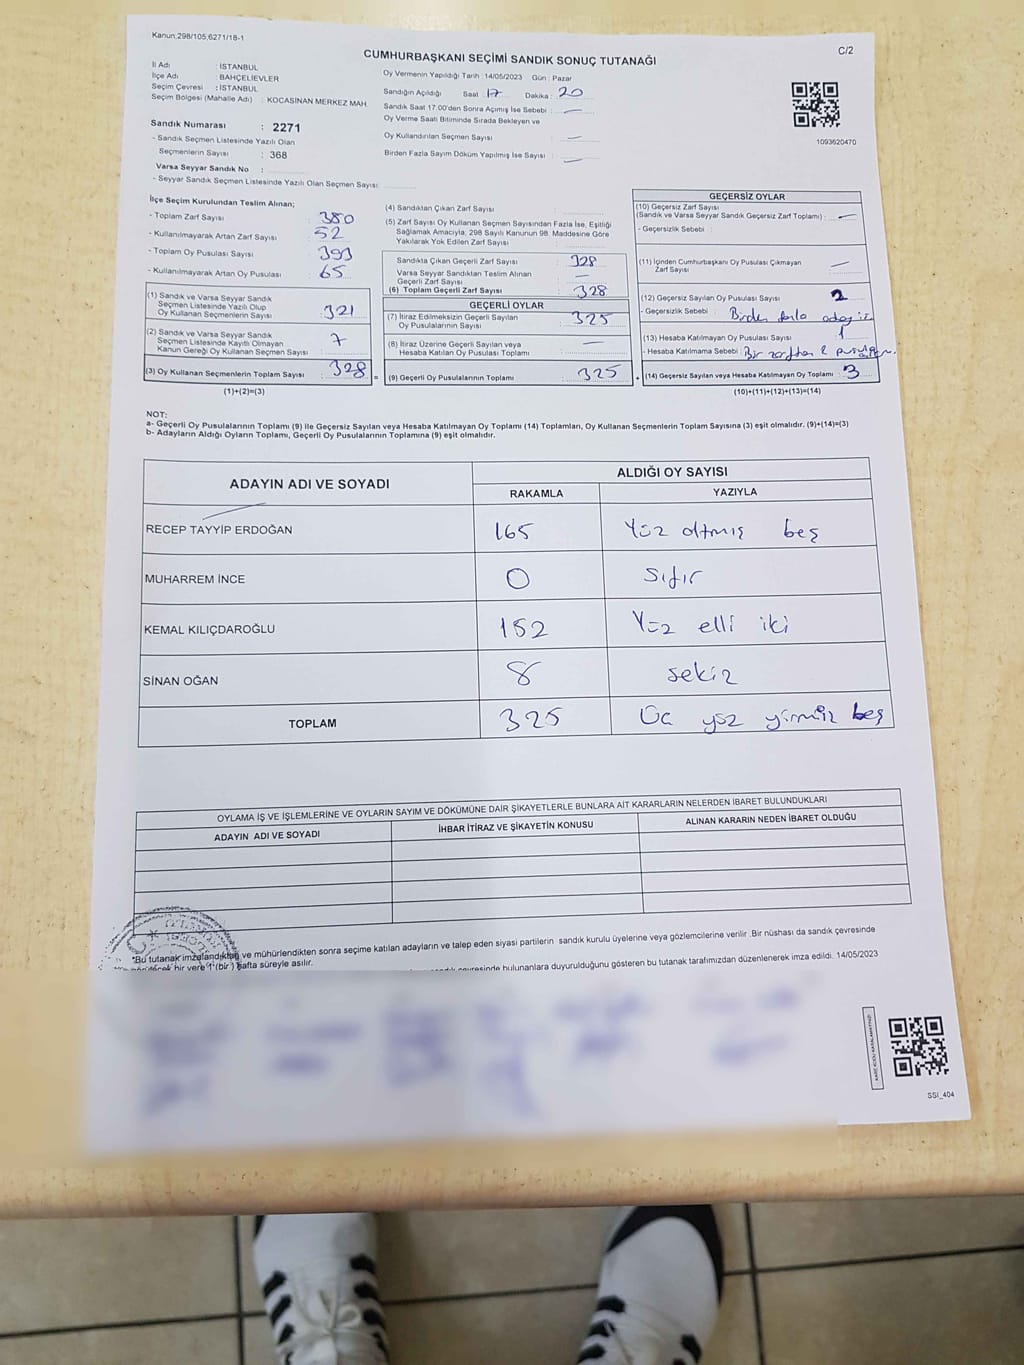 Kanun:298/105,6271/18-1
C/2
CUMHURBAŞKANI SEÇİMİ SANDIK SONUÇ TUTANAĞI
İl Adı : İSTANBUL
İlçe Adı : BAHÇELİEVLER
Seçim Çevresi : İSTANBUL
Seçim Bölgesi (Mahalle Adı) : KOCASİNAN MERKEZ MAH.
Sandık Numarası : 2271
- Sandık Seçmen Listesinde Yazılı Olan
Seçmenlerin Sayısı : 368
Varsa Seyyar Sandık No :
- Seyyar Sandık Seçmen Listesinde Yazılı Olan Seçmen Sayısı:
Oy Vermenin Yapıldığı Tarih :14/05/2023 Gün : Pazar
Sandığın Açıldığı Saat : 17 Dakika : 20
Sandık Saat 17.00'den Sonra Açımış İse Sebebi : —
Oy Verme Saati Bitiminde Sırada Bekleyen ve
Oy Kullandırılan Seçmen Sayısı : —
Birden Fazla Sayım Döküm Yapılmış İse Sayısı : —
1093620470
İlçe Seçim Kurulundan Teslim Alınan;
- Toplam Zarf Sayısı : 380
- Kullanılmayarak Artan Zarf Sayısı : 52
- Toplam Oy Pusulası Sayısı : 393
- Kullanılmayarak Artan Oy Pusulası : 65
(1) Sandık ve Varsa Seyyar Sandık
Seçmen Listesinde Yazılı Olup
Oy Kullanan Seçmenlerin Sayısı : 321
(2) Sandık ve Varsa Seyyar Sandık
Seçmen Listesinde Kayıtlı Olmayan
Kanun Gereği Oy Kullanan Seçmen Sayısı : 7
(3) Oy Kullanan Seçmenlerin Toplam Sayısı : 328
(1)+(2)=(3)
(4) Sandıktan Çıkan Zarf Sayısı :
(5) Zarf Sayısı Oy Kullanan Seçmen Sayısından Fazla İse, Eşitliği
Sağlamak Amacıyla, 298 Sayılı Kanunun 98. Maddesine Göre
Yakılarak Yok Edilen Zarf Sayısı :
Sandıkta Çıkan Geçerli Zarf Sayısı : 328
Varsa Seyyar Sandıktan Teslim Alınan
Geçerli Zarf Sayısı : —
(6) Toplam Geçerli Zarf Sayısı : 328
GEÇERLİ OYLAR
(7) İtiraz Edilmeksizin Geçerli Sayılan
Oy Pusulalarının Sayısı : 325
(8) İtiraz Üzerine Geçerli Sayılan veya
Hesaba Katılan Oy Pusulası Toplamı : —
= (9) Geçerli Oy Pusulalarının Toplamı : 325
GEÇERSİZ OYLAR
(10) Geçersiz Zarf Sayısı
(Sandık ve Varsa Seyyar Sandık Geçersiz Zarf Toplamı) : —
- Geçersizlik Sebebi :
(11) İçinden Cumhurbaşkanı Oy Pusulası Çıkmayan
Zarf Sayısı : —
(12) Geçersiz Sayılan Oy Pusulası Sayısı : 2
- Geçersizlik Sebebi : Birden fazla
(13) Hesaba Katılmayan Oy Pusulası Sayısı : 1
- Hesaba Katılmama Sebebi : Bir zarftan 2 pusula
+ (14) Geçersiz Sayılan veya Hesaba Katılmayan Oy Toplamı : 3
(10)+(11)+(12)+(13)=(14)
NOT:
a- Geçerli Oy Pusulalarının Toplamı (9) ile Geçersiz Sayılan veya Hesaba Katılmayan Oy Toplamı (14) Toplamları, Oy Kullanan Seçmenlerin Toplam Sayısına (3) eşit olmalıdır. (9)+(14)=(3)
b- Adayların Aldığı Oyların Toplamı, Geçerli Oy Pusulalarının Toplamına (9) eşit olmalıdır.
ADAYIN ADI VE SOYADI
ALDIĞI OY SAYISI
RAKAMLA YAZIYLA
RECEP TAYYİP ERDOĞAN 165 Yüz altmış beş
MUHARREM İNCE 0 Sıfır
KEMAL KILIÇDAROĞLU 152 Yüz elli iki
SİNAN OĞAN 8 sekiz
TOPLAM 325 Üç yüz yirmi beş
OYLAMA İŞ VE İŞLEMLERİNE VE OYLARIN SAYIM VE DÖKÜMÜNE DAİR ŞİKAYETLERLE BUNLARA AİT KARARLARIN NELERDEN İBARET BULUNDUKLARI
ADAYIN ADI VE SOYADI İHBAR İTİRAZ VE ŞİKAYETİN KONUSU ALINAN KARARIN NEDEN İBARET OLDUĞU
"Bu tutanak imzalandıktan ve mühürlendikten sonra seçime katılan adayların ve talep eden siyasi partilerin sandık kurulu üyelerine veya gözlemcilerine verilir. Bir nüshası da sandık çevresinde
bir yere 1 (bir) hafta süreyle asılır.
çevresinde bulunanlara duyurulduğunu gösteren bu tutanak tarafımızdan düzenlenerek imza edildi. 14/05/2023
SSI_404